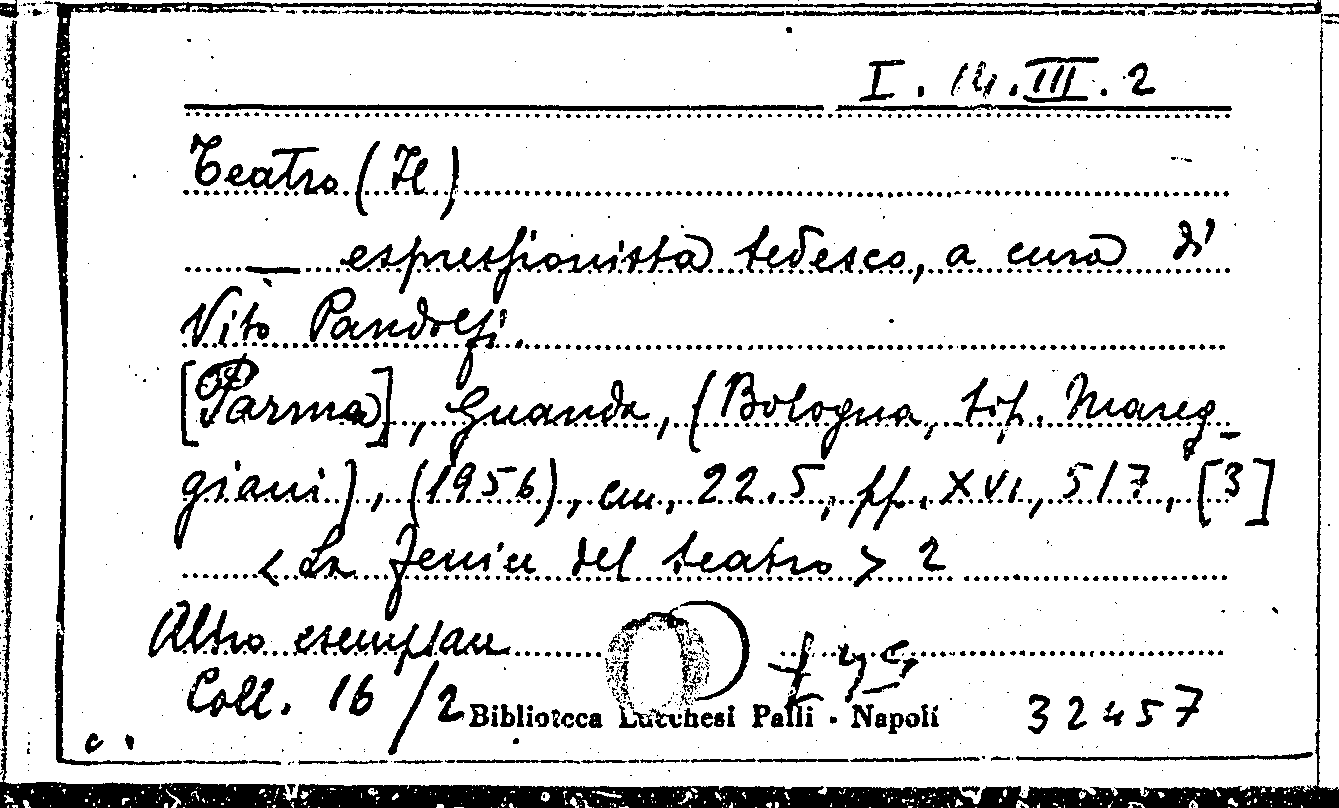 I. 14. III. 2
Teatro (Il)
— espressionista tedesco, a cura di
Vito Pandolfi.
[Parma], Guanda, (Bologna, tip. Mareg-
giani), (1956), cm. 22.5, pp. XVI, 517, [3]
< La Fenice del teatro > 2
Altro esemplare
Coll. 16/2
Biblioteca Lucchesi Palli - Napoli
32457